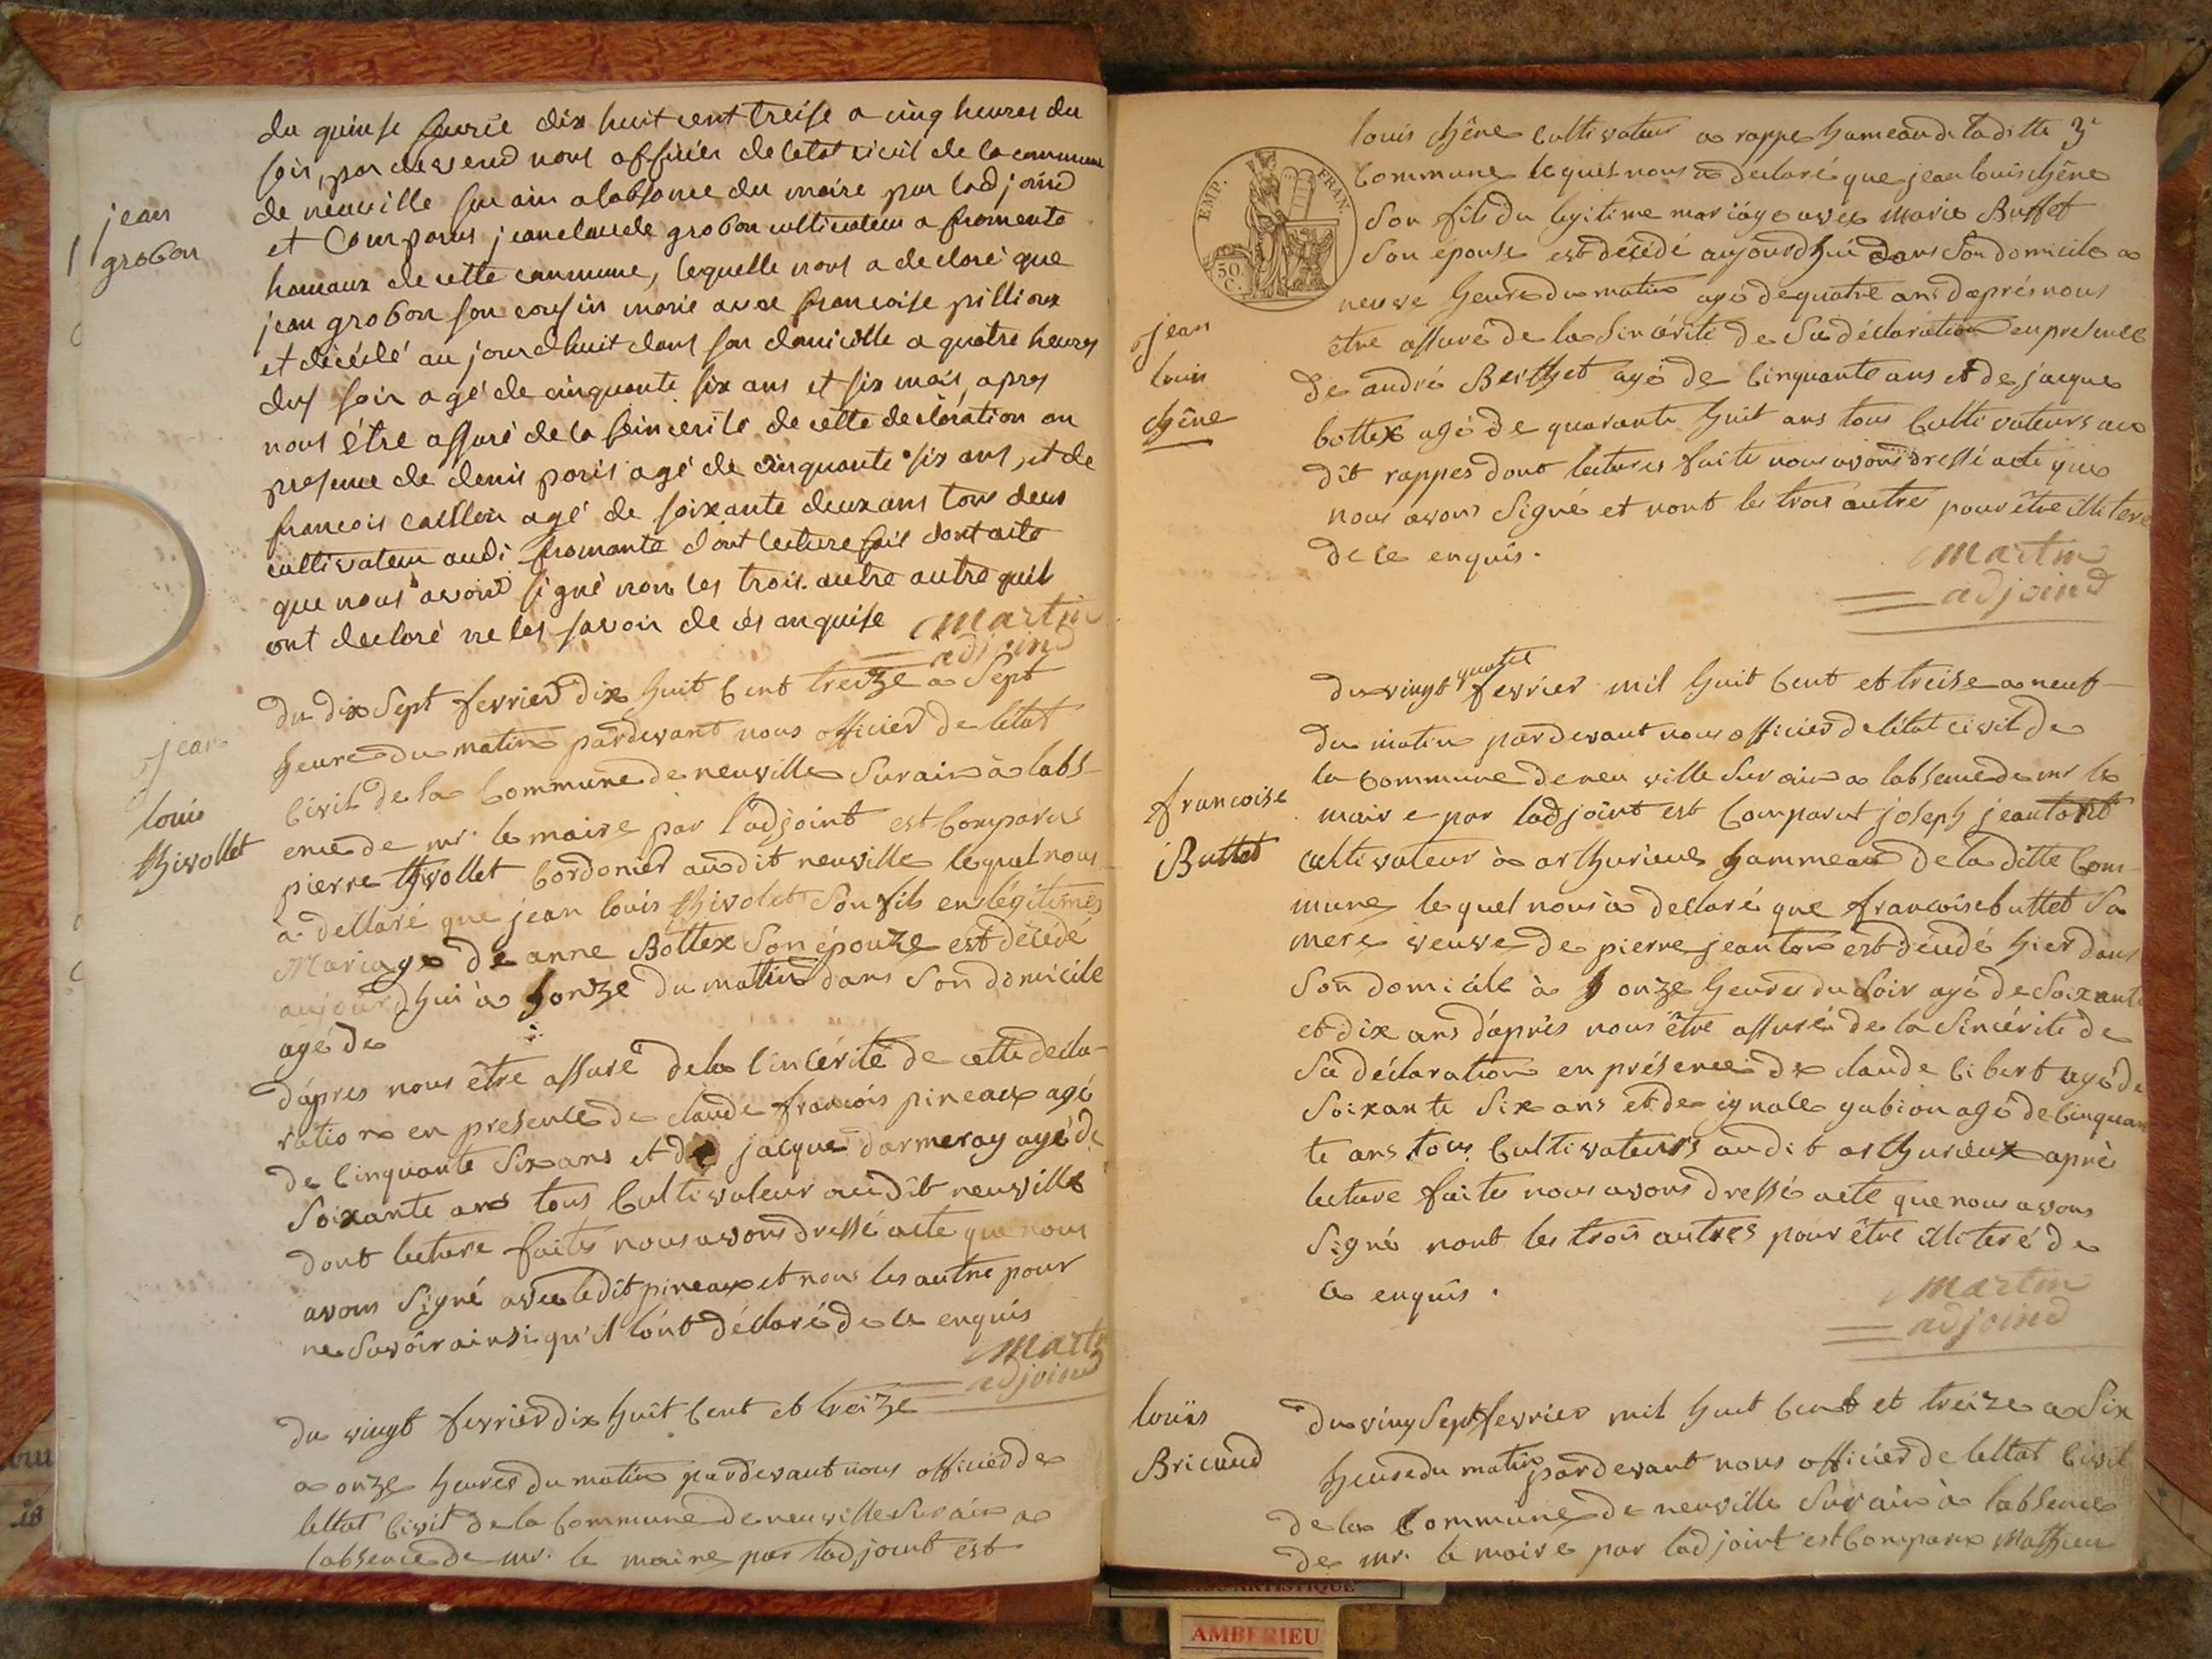 du quinse feurié dix huit cent treise a cinq heures du
soir, par devend nous officier de letat civil de la commune
de neuville sur ain a labsance du maire par ladjoind
jean
grobon
et Comparus jean claude grobon cultivateur a fromente
hamaux de cette commune, lequelle nous a declaré que
jean grobon son cousin marié avec francoise pillioux
et décédé au jourdhuit dans son domicille a quatre heures
dus soir agé de cinquante six ans et six mois, apres
nous être assuré de la seincerite de cette declaration an
presence de denis paris agé de cinquante six ans, et de
francois agé de soixante deux ans tous deux
cultivateur audi fromante dont lecture fait dont acte
que nous avond signé non les trois autre autre quil
ont declaré ne les savoir de ces anquise
Martin
adjoind
du dix Sept fevrier dix huit Cent treize a Sept
heure du matin pardevant nous officier de létat
jean
louis
thivollet
Civil de la Commune de neuville Sur ain à labs-
ence de mr. le maire par l'adjoint est Comparus
pierre thivollet Cordonier audit neuville lequel nous
à dellaré que jean louis thivolet Son fils en légitimes
Mariage de anne Bottex Son épouze est décédé
aujourdhui à honze du matin dans Son domicile
agé de
d'apres nous être assuré dela Sincérité de cette decla-
ration en presence de claude francois pineaux agé
de Cinquante Six ans et de jacque darmeray agé de
Soixante ans tous Cultivateur audit neuville
dont lecture faites nous avons dressé acte que nous
avons Signé avec ledit pineaux et nous les autre pour
ne Savoir ainsi qu'il lont déllaré de ce enquis
Martin
adjoind
du vingt fevrier dix huit Cent et treize
a onze heures du matin pardevant nous officier de
lettat Civil de la Commune de neuville Sur ain a
labsence de mr. le maire par ladjoint est
louis chêne Cultivateur a rappe hameau de laditte 3e
EMP. FRAN.
50
C.
Commune lequel nous a declaré que jean louis chêne
Son fils du legitime mariage avec marie Buffet
Son épouse est décédé aujourdhui dans Son domicile a
neuve heure du matin agé de quatre ans daprés nous
jean
louis
chêne
être assuré de la Sincérité de Sa déclaration en presence
de andré Berthet agé de Cinquante ans et de jacque
bottex agé de quarante huit ans tous Cultivateurs au
dît rappes dont lectures faite nous avons dressé acte que
nous avons Signé et nont les trois autres pour être illiteré
de ce enquis.
Martin
adjoind
quatre
du vingt fevrier mil huit Cent et treise a neuf
du matin pardevant nous officier de létat civil de
la Commune de neu ville Sur ain a labsence de mr le
francoise
Buttet
maire par ladjoint est Comparut joseph jeanton
cultivateur à arthurieux hammeau de la ditte Com-
mune le quel nous à declaré que francoise buttet Sa
mere veuve de pierre jeanton est décédé hier dans
Son domicile à onze heures du Soir agé de Soixante
et dix ans d'après nous être assuré de la Sincérité de
Sa déclaration en présence de claude libert agé de
Soixante Six ans et de ignace gabion agé de Cinquan
te ans tous Cultivateurs audit arthurieux après
lecture faites nous avons dressé acte que nous avons
Signé nont les trois autres pour être illiteré de
ce enquis.
Martin
adjoind
louis
Bricaud
du ving Sept fevrier mil huit Cent et treize a Six
heure du matin pardevant nous officier de lettat Civil
de la Commune de neuville Sur ain à labsence
de mr. le maire par ladjoint est Comparu Mathieu
ARTISTIQUE
AMBERIEU